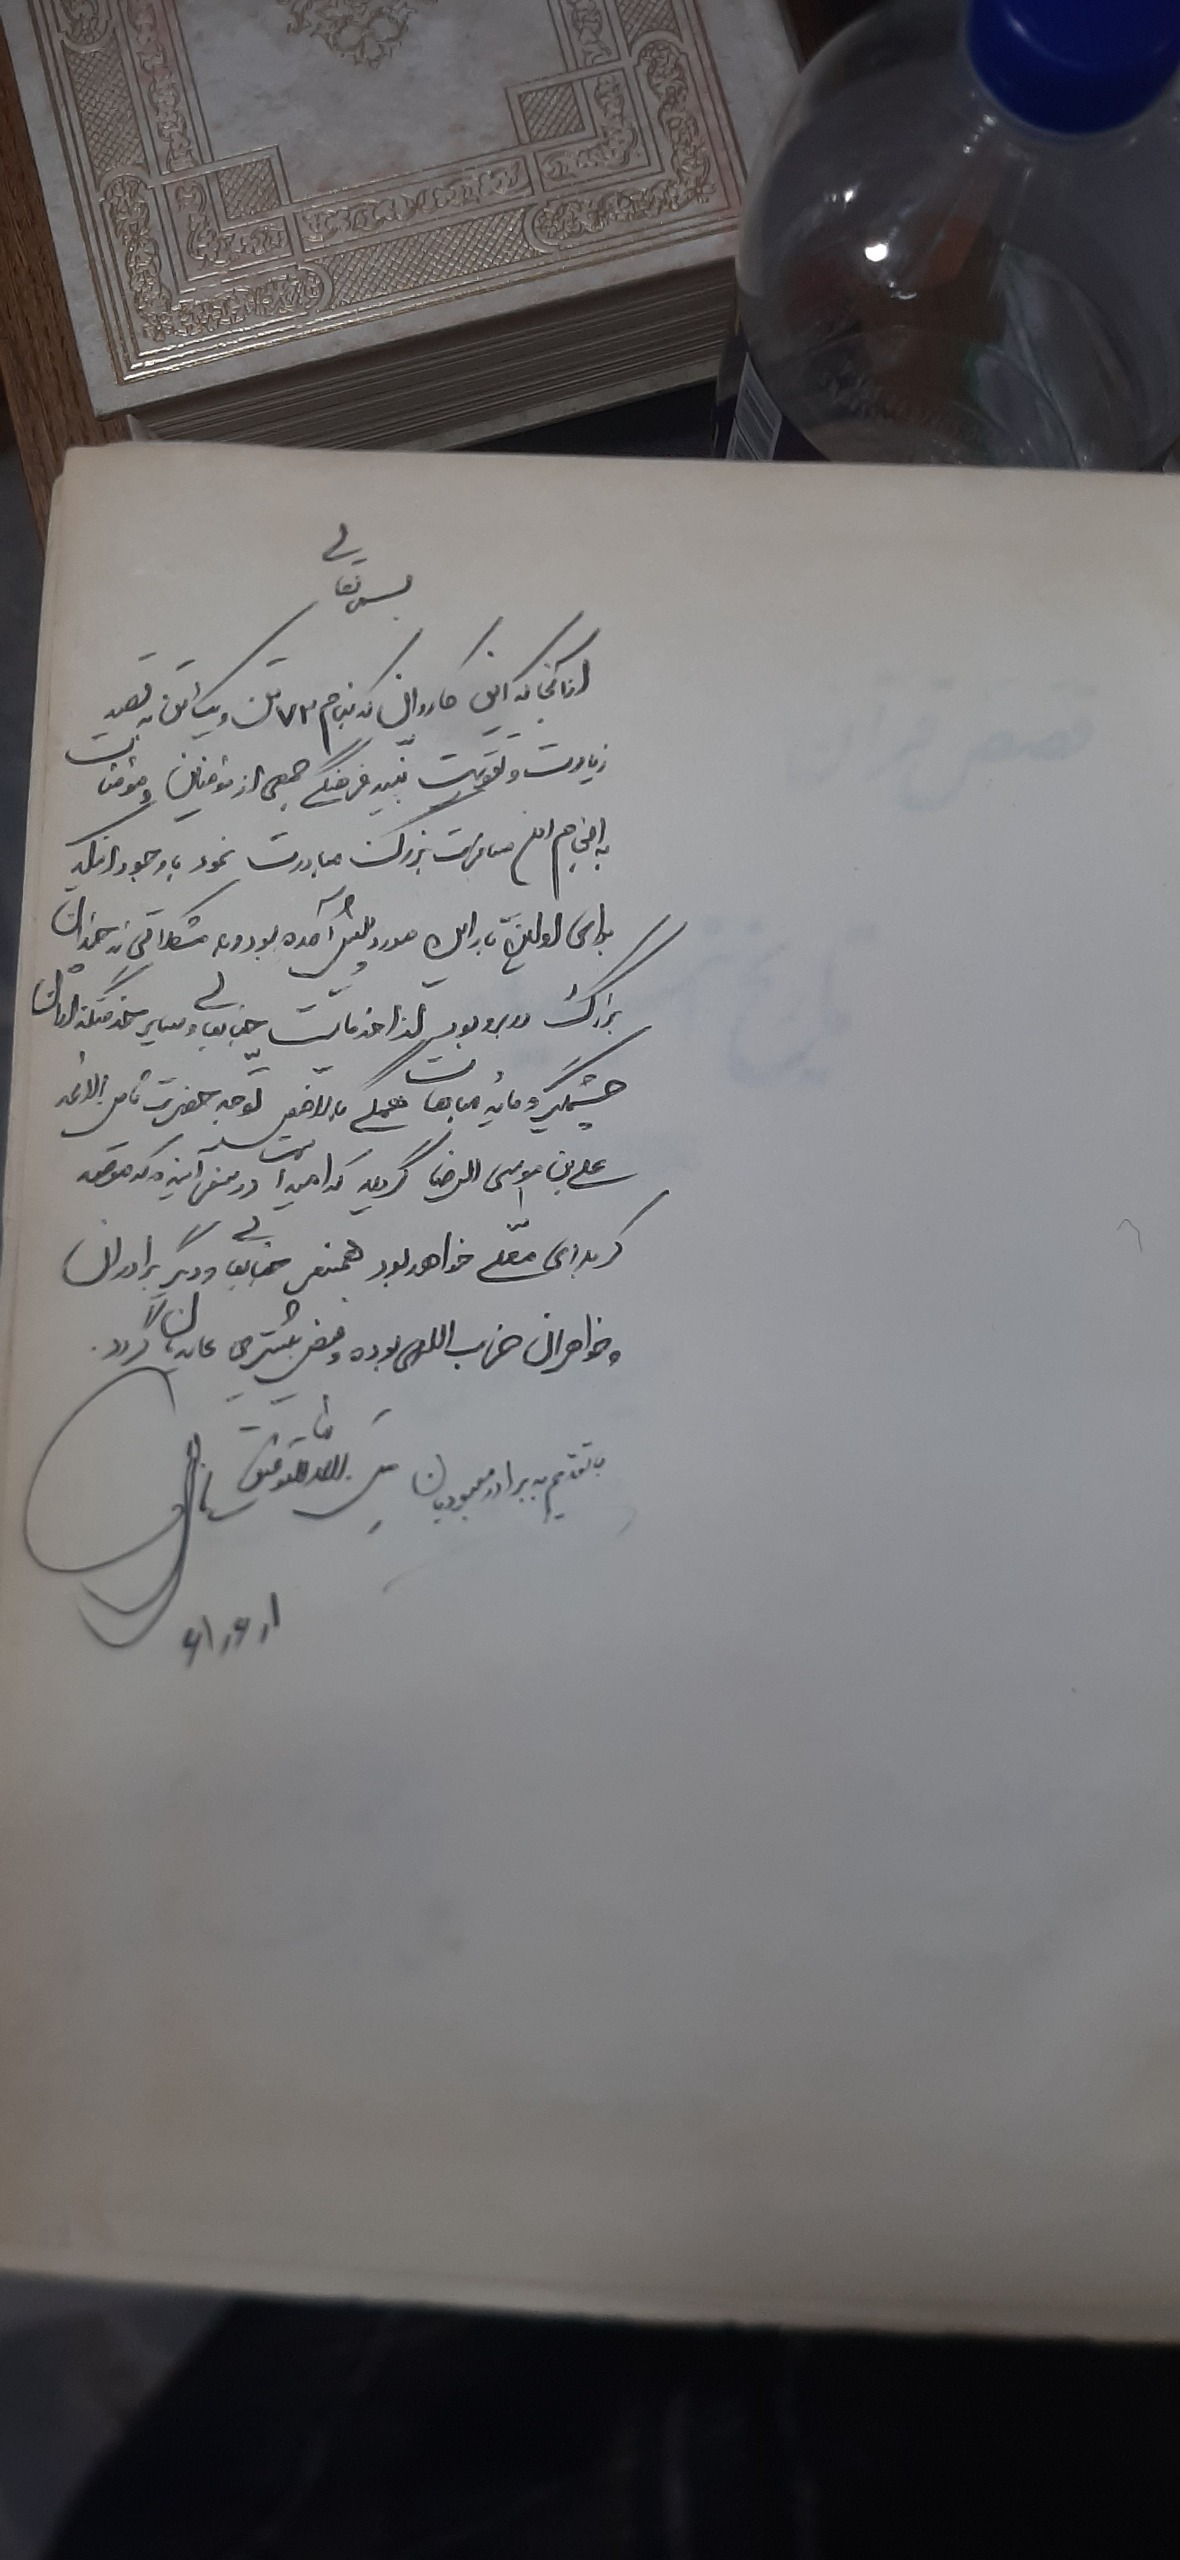 بسمه تعالی
از آنجا که این کاروان که بنام ۷۲ تن و یک تن به قصد
زیارت و تقویت بنیه فرهنگی جمعی از مؤمنین و مؤمنات
به انجام این مسافرت بزرگ مبادرت نمود با وجود اینکه
برای اولین بار این مورد پیش آمده بود و به مشکلاتی نه چندان
بزرگ روبرو بود لذا خدمات جنابعالی و سایر خدمتگذاران
چشمگیر و مایه مباهات همگی بالاخص توجه حضرت ثامن الائمه
علی بن موسی الرضا گردید که امید است در سفر آینده که موقعه
کربلای معلی خواهد بود همسفر جنابعالی و دیگر برادران
و خواهران حزب اللهی بوده و فیض بیشتری عایدمان گردد.
با تقدیم به برادر معبودیان
من الله التوفیق
۶۱/۶/۱
قصص قرآن